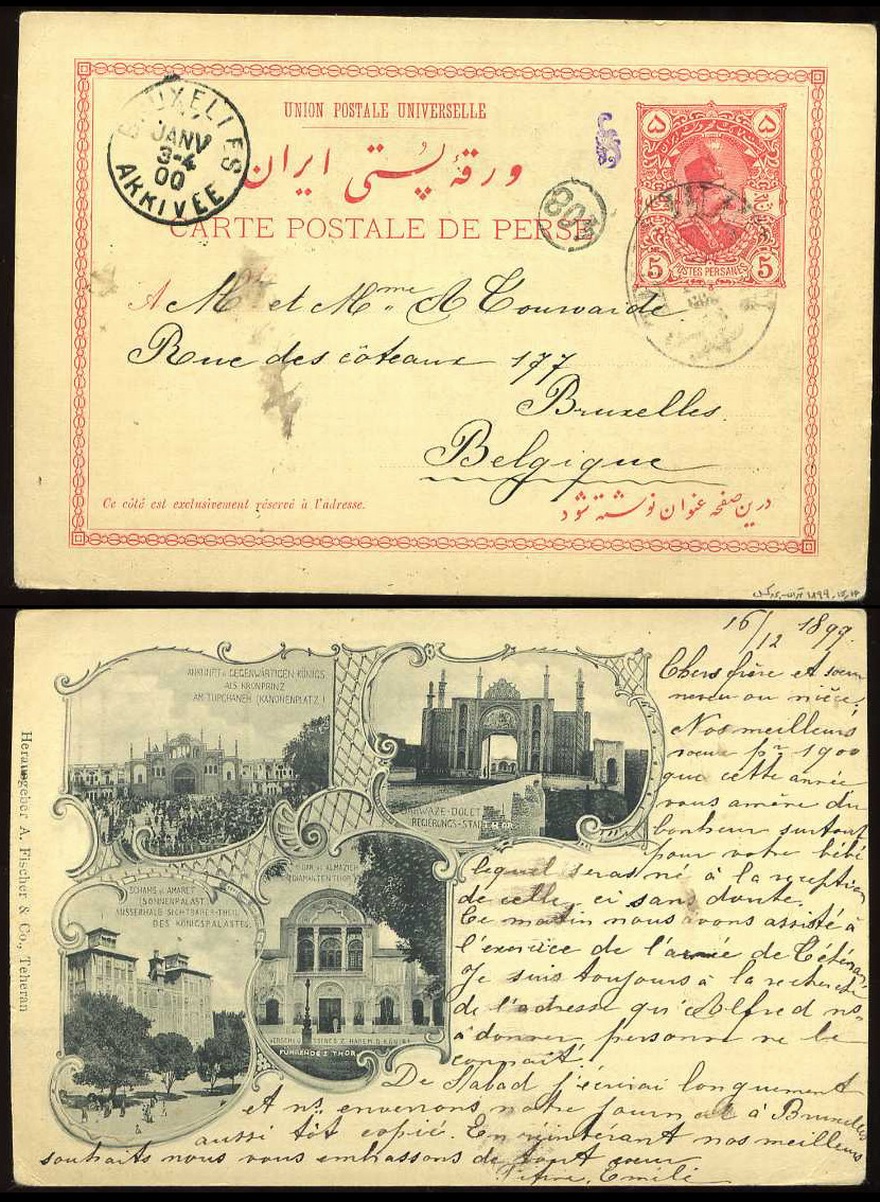 BRUXELLES
JANV
3-4
00
ARRIVÉE
UNION POSTALE UNIVERSELLE
ورقهٔ پستی ایران
CARTE POSTALE DE PERSE
803
۵ ۵
5 POSTES PERSANES 5
A Mr et Mme A
Rue des côteaux 177
Bruxelles.
Belgique
Ce côté est exclusivement réservé à l'adresse.
درین صفحه عنوان نوشته شود
16/12 1899.
Herausgeber A. Fischer & Co., Teheran
ANKUNFT D. GEGENWÄRTIGEN KÖNIGS
ALS KRONPRINZ
AM TUPCHANEH (KANONENPLATZ)
DOLET
REGIERUNGS-
SCHAMS U. AMARET
(SONNENPALAST)
AUSSERHALB SICHTBARER THEIL
DES KÖNIGSPALASTES
ALMAZIEH
(DIAMANTENTHOR)
Z. HAREM D. KÖNIGS
FÜHRENDES THOR
Chers frère et soeur
neveu ou nièce,
Nos meilleurs
voeux pr 1900
que cette année
vous amène du
bonheur surtout
pour votre bébé
lequel seras né à la réception
de celle ci sans doute.
Ce matin nous avons assisté à
l'exercice de l'armée de Téhéran
Je suis toujours à la recherche
de l'adresse qu'Alfred ns
à donner, personne ne le
connait.
De j'écrirai longuement
et ns enverrons notre journal à Bruxelles
aussi tôt copié. En nos meilleurs
souhaits nous vous embrassons de tout coeur
Emile